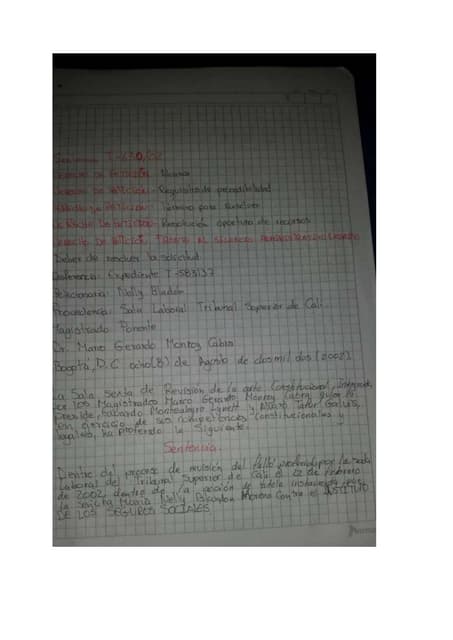 Sentencia T-630/02
DERECHO DE PETICIÓN - Alcance
DERECHO DE PETICIÓN - Requisito de procedibilidad
DERECHO DE PETICIÓN - Término para Resolver
DERECHO DE PETICIÓN - Resolución oportuna de recursos
DERECHO DE PETICIÓN FRENTE AL SILENCIO ADMINISTRATIVO
Deber de resolver la solicitud
Referencia: Expediente T-583137
Peticionaria: Nelly
Procedencia: Sala Laboral Tribunal Superior de Cali.
Magistrado Ponente
Dr. Marco Gerardo Monroy Cabra
Bogotá, D.C ocho (8) de Agosto de dos mil dos (2002)
La Sala Sexta de Revisión de la corte Constitucional, integrada
por los Magistrados Marco Gerardo Monroy Cabra, quien la
Preside, Eduardo Montealegre Lynett y Alvaro Tafur Galvis,
en ejercicio de sus competencias constitucionales y
legales, ha proferido la Siguiente:
Sentencia.
Dentro del proceso de revisión del fallo proferido por la sala
Laboral del Tribunal Superior de Cali el 12 de febrero
de 2002, dentro de la acción de tutela instaurada por
la señora María Nelly Moreno Contra el INSTITUTO
DE LOS SEGUROS SOCIALES